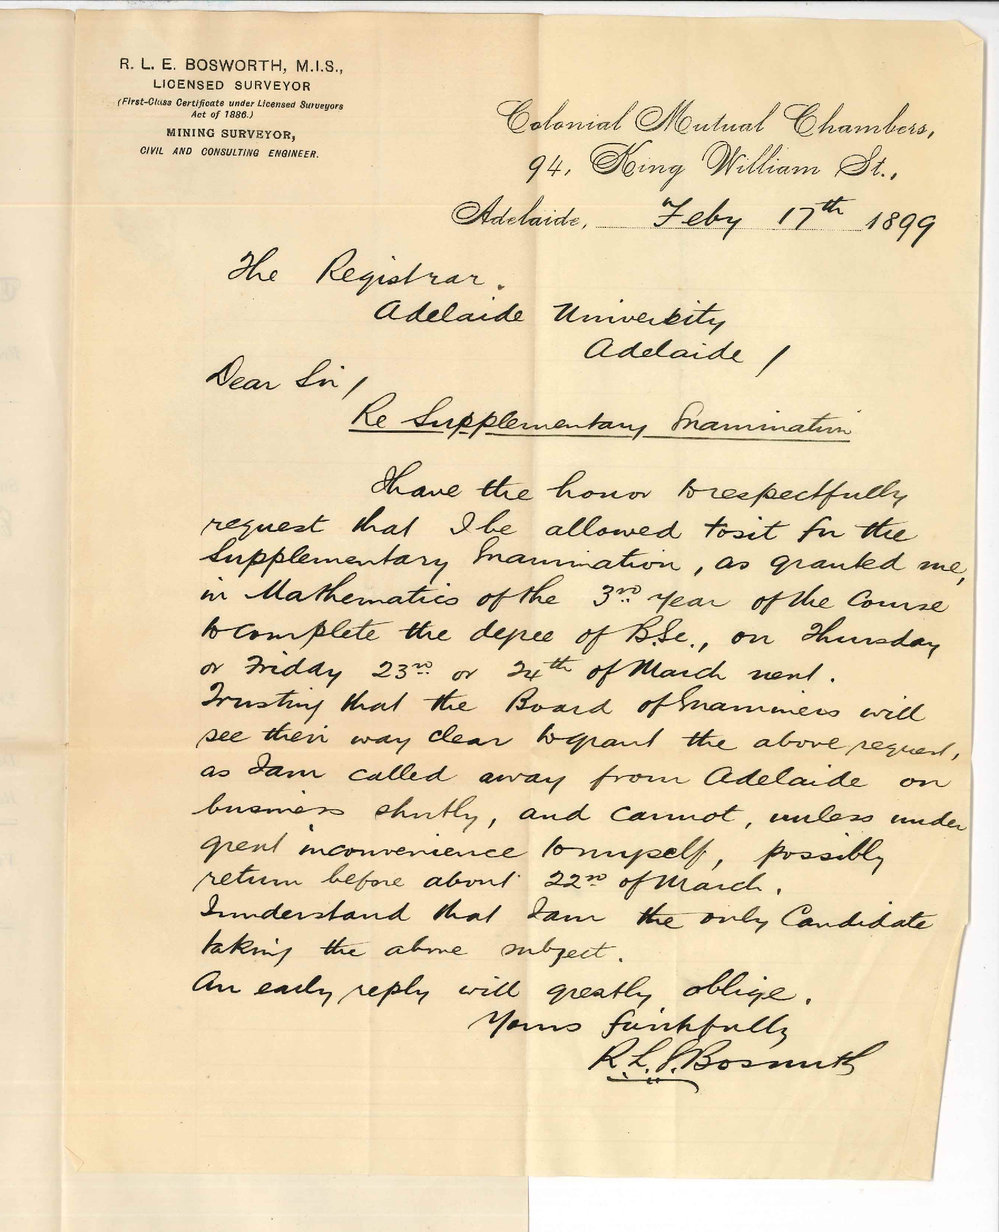 R. L. E. BOSWORTH, M.I.S.,
LICENSED SURVEYOR
(First-Class Certificate under Licensed Surveyors
Act of 1886.)
MINING SURVEYOR,
CIVIL AND CONSULTING ENGINEER.
Colonial Mutual Chambers,
94, King William St.,
Adelaide, Feby 17th 1899
The Registrar.
Adelaide University
Adelaide /
Dear Sir /
Re Supplementary Examination
I have the honor to respectfully
request that I be allowed to sit for the
Supplementary Examination, as granted me,
in Mathematics of the 3rd year of the Course
to complete the degree of B.Sc., on Thursday
or Friday 23rd or 24th of March next.
Trusting that the Board of Examiners will
see their way clear to grant the above request,
as I am called away from Adelaide on
business shortly, and cannot, unless under
great inconvenience to myself, possibly
return before about 22nd of March.
I understand that I am the only Candidate
taking the above subject.
An early reply will greatly oblige.
Yours faithfully
R. L. E. Bosworth